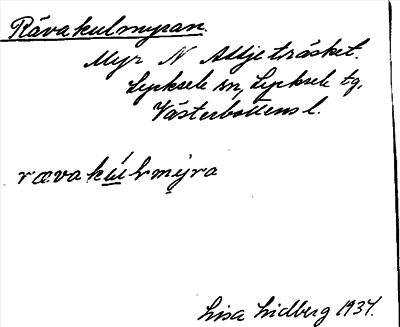 Rävakulmyran.
Myr N Altjeträsket.
Lycksele sn, Lycksele tg,
Västerbottens l.
rævakúlmýra
Lisa Lidberg 1937.